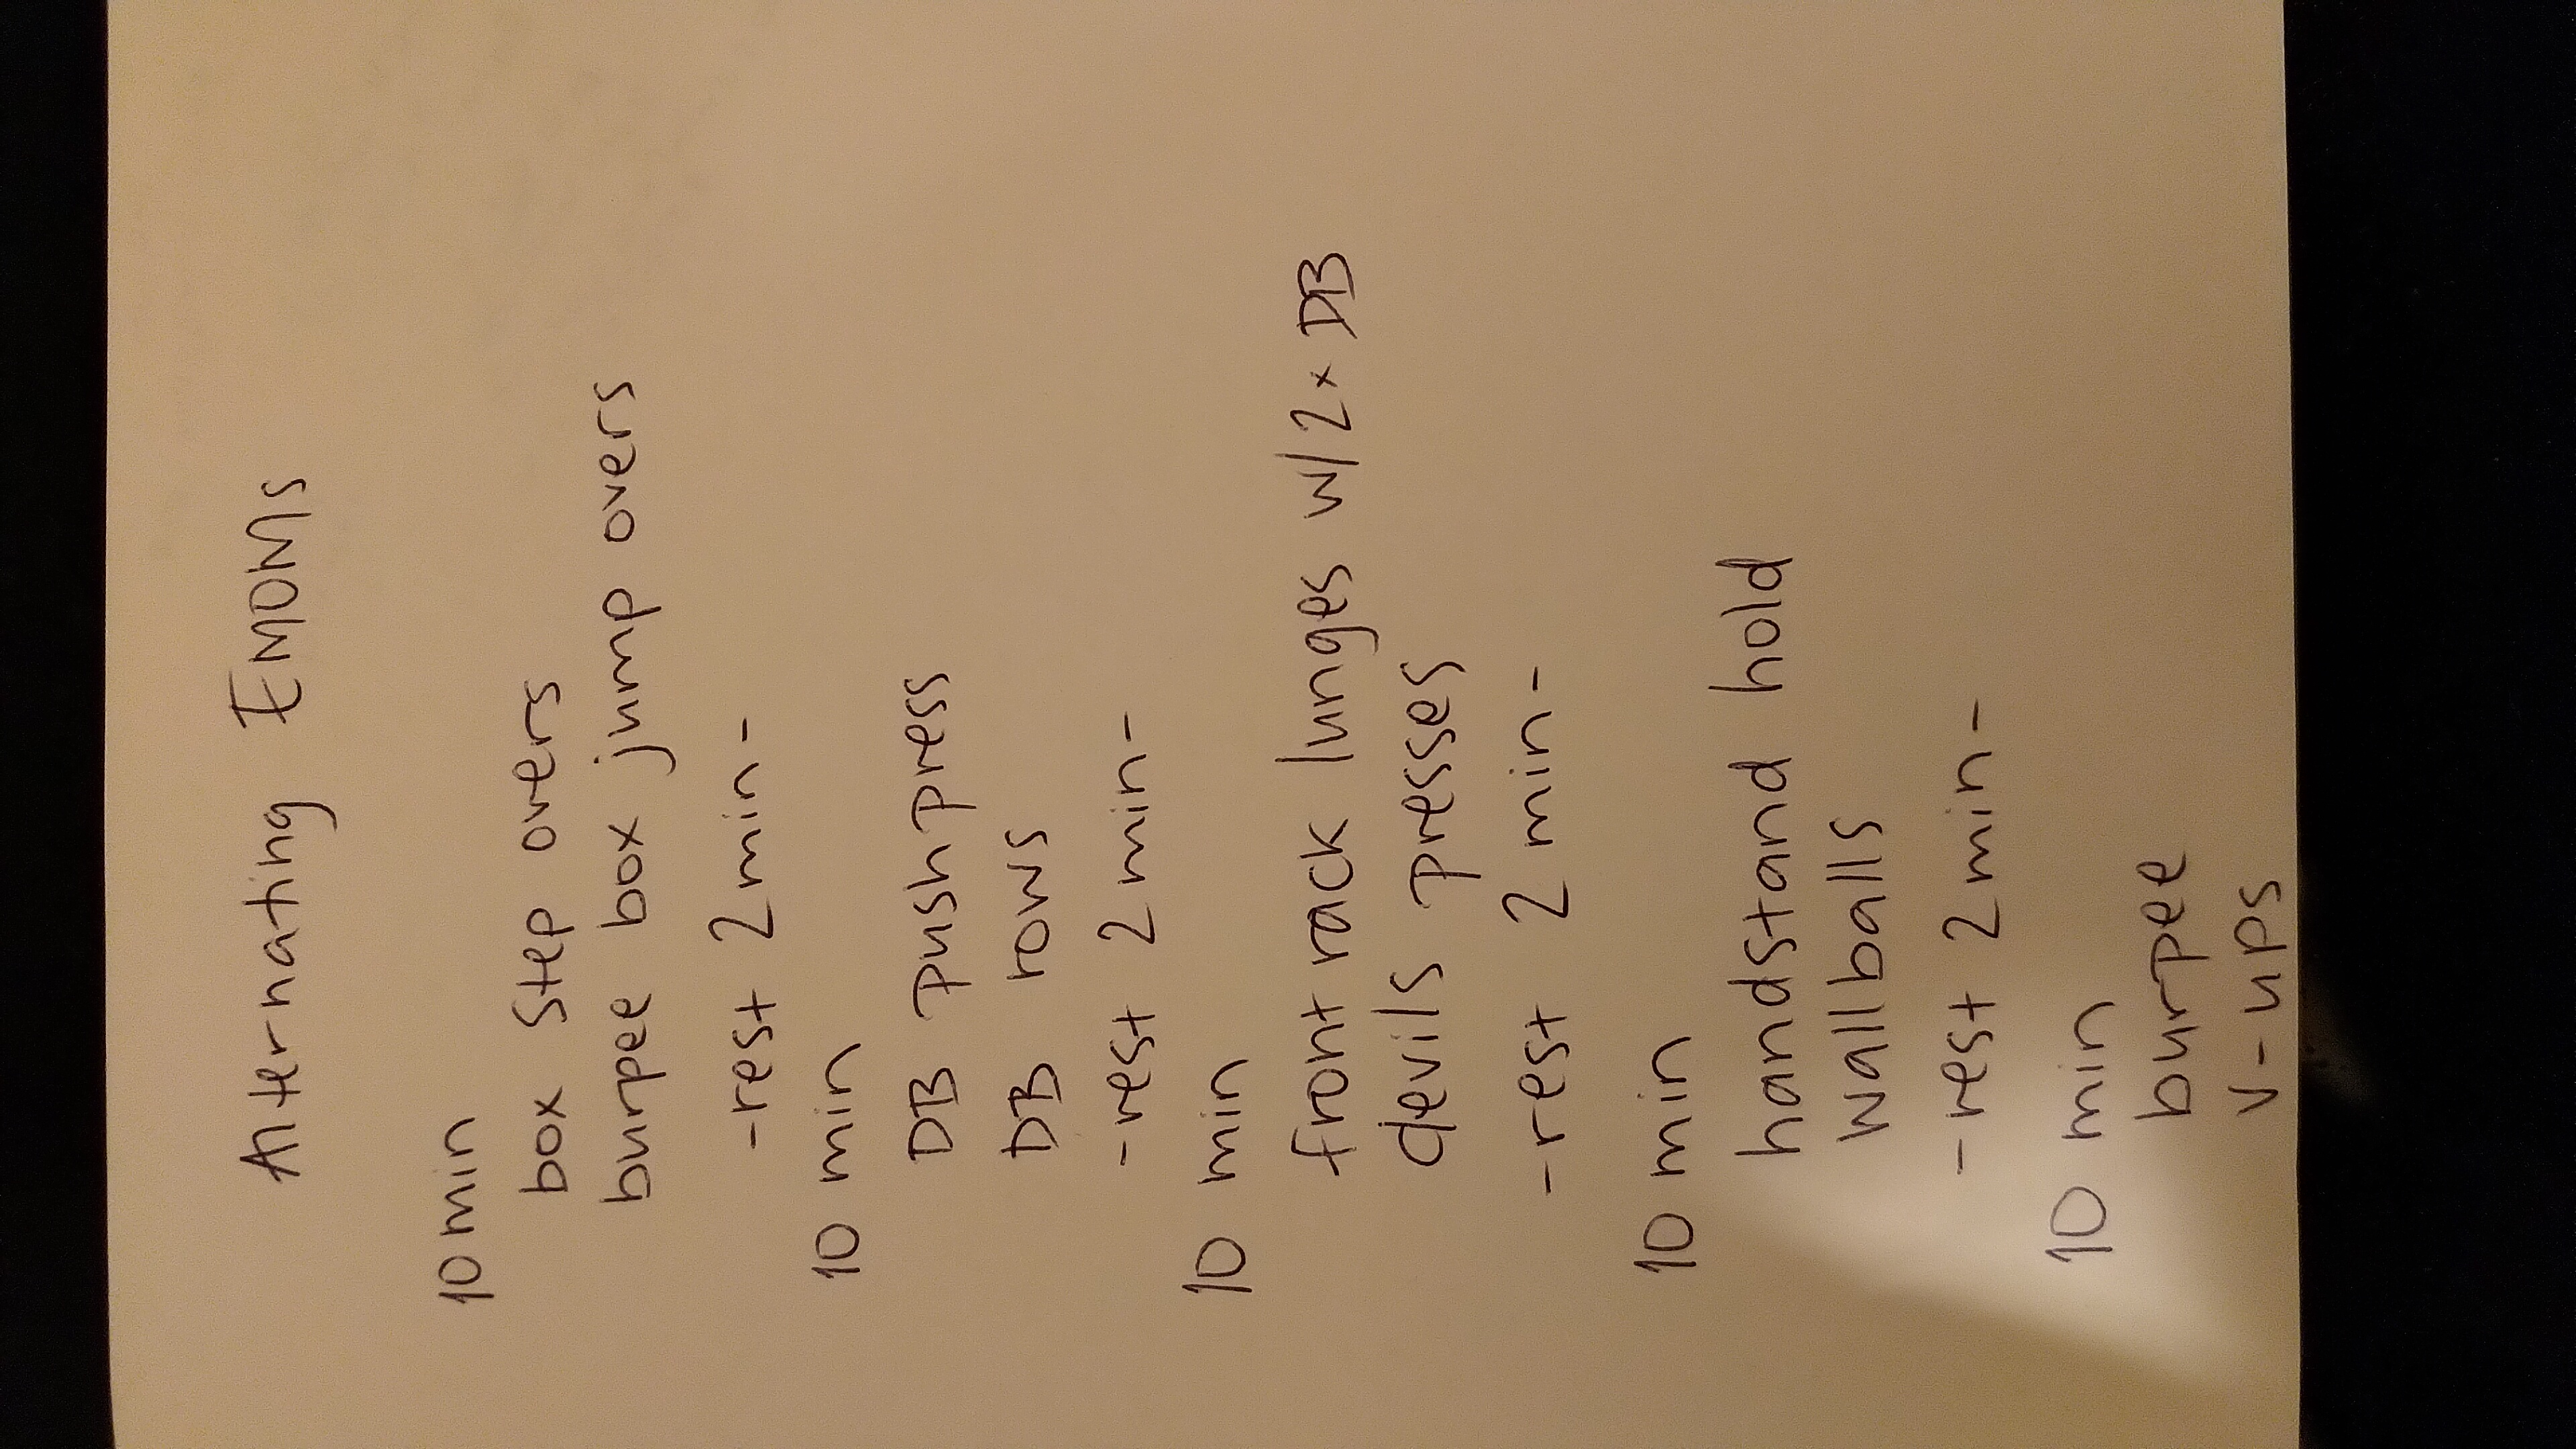 Alternating EMOMs
10 min
box step overs
burpee box jump overs
-rest 2 min-
10 min
DB push press
DB rows
-rest 2 min-
10 min
front rack lunges w/ 2x DB
devils presses
-rest 2 min-
10 min
handstand hold
wallballs
-rest 2 min-
10 min
burpee
v-ups